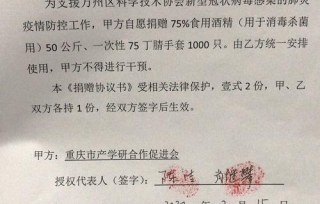 为支援万州区科学技术协会新型冠状病毒感染的肺炎
疫情防控工作，甲方自愿捐赠 75%食用酒精（用于消毒杀菌
用）50 公斤、一次性 75 丁腈手套 1000 只。由乙方统一安排
使用，甲方不得进行干预。
本《捐赠协议书》受相关法律保护，壹式 2 份，甲、乙
双方各持 1 份，经双方签字后生效。
甲方：重庆市产学研合作促进会
授权代表人（签字）：